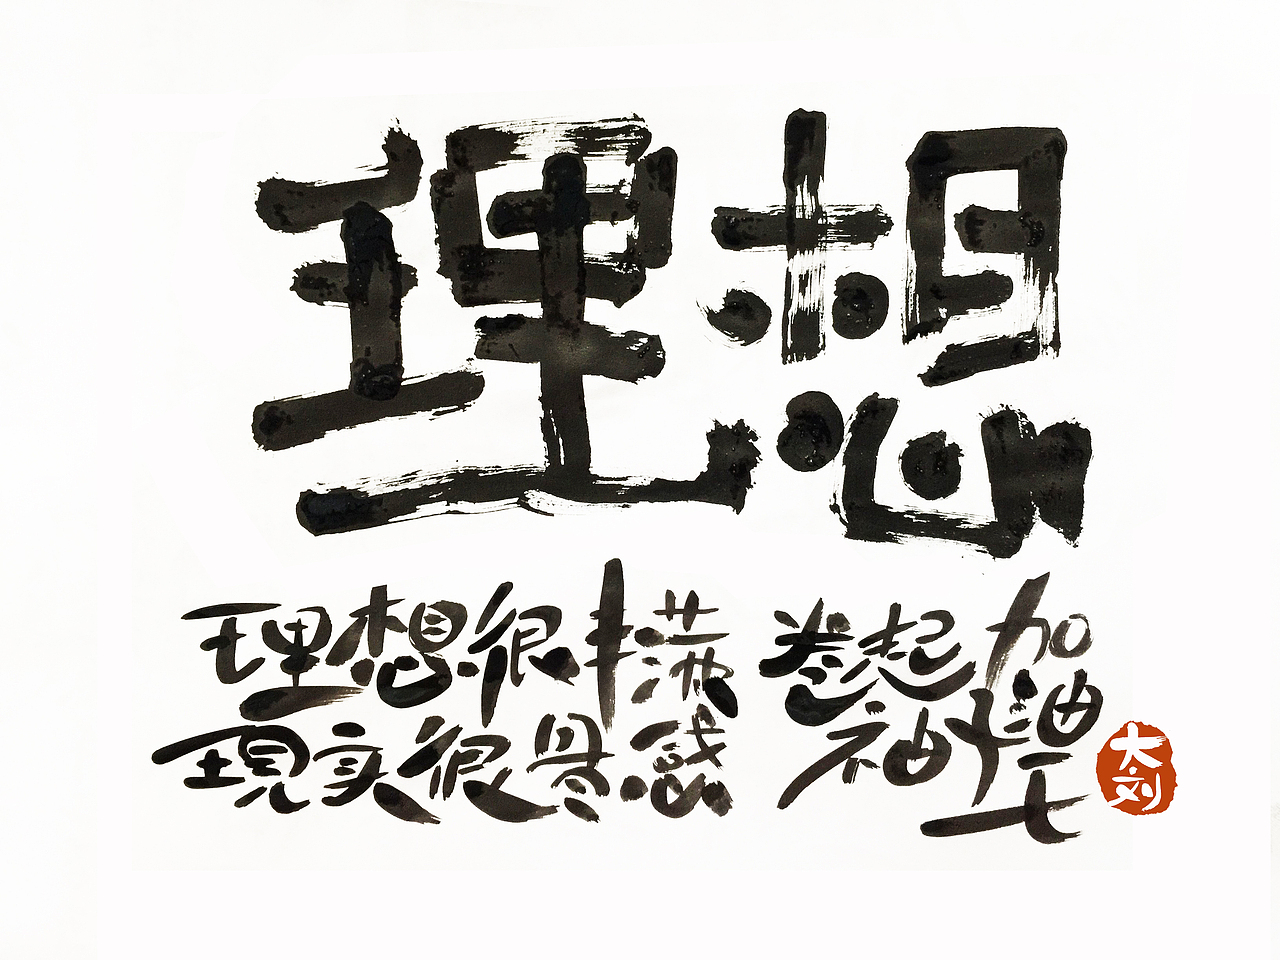 理想
理想很丰满
现实很骨感
卷起袖子
加油干
大刘